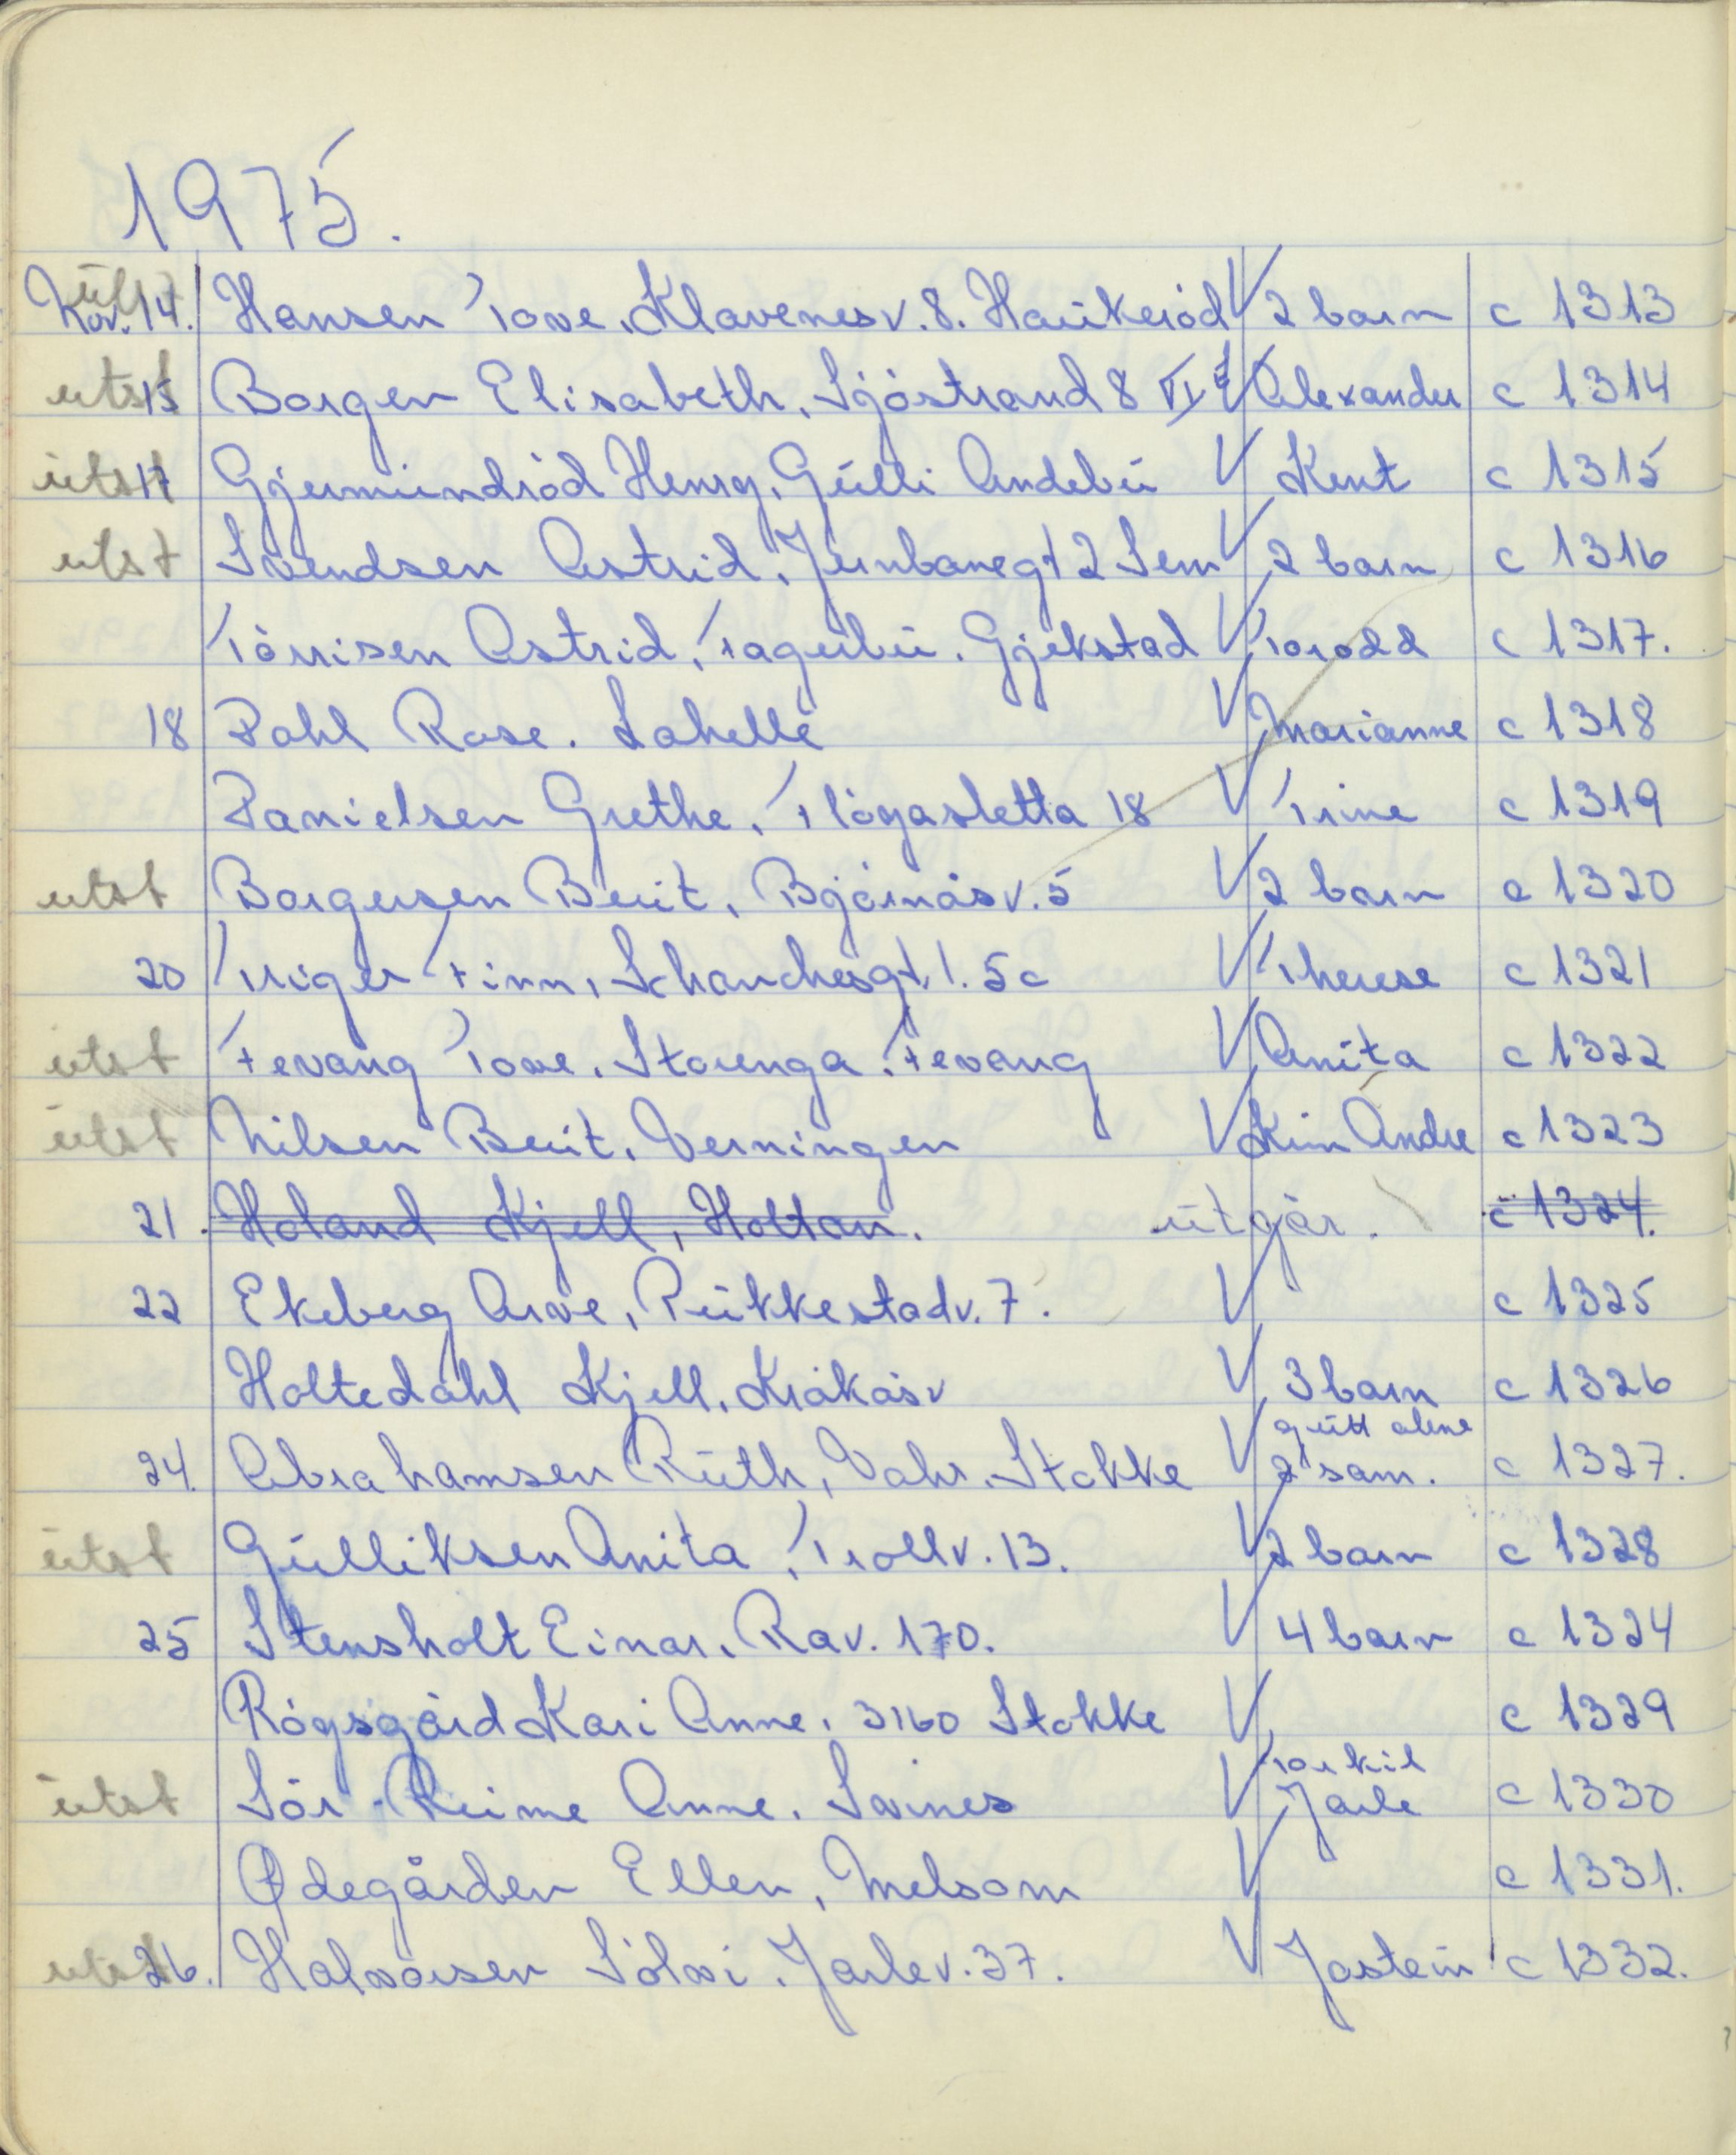 1975.
utst Nov. 14. Hansen Tove, Klavenesv. 8. Haukerød V 2 barn c 1313
utst 15 Borgen Elisabeth, Sjöstrand 8 VI V Alexander c 1314
utst 17 Gjermundrød Henry, Gulli Andebu V Kent c 1315
utst Svendsen Astrid, Jernbanegt 2 Sem V 2 barn c 1316
Tørrisen Astrid, Fagerbu. Gjekstad V Torodd c 1317.
18 Dahl Rose. Lahelle V Marianne c 1318
Danielsen Grethe, Flögasletta 18 V Trine c 1319
utst Borgersen Berit, Bjørnåsv. 5 V 2 barn c 1320
20 Triger Finn, Schanchesgt. 5c V Therese c 1321
utst Fevang Tove. Storenga. Fevang V Anita c 1322
utst Nilsen Berit. Verningen V Kim Andre c 1323
21. Holand Kjell, Holtan. utgår. c 1324.
22 Ekeberg Arve, Rukkestadv. 7. V c 1325
Holtedahl Kjell, Kråkåsv V 3 barn c 1326
gutt alene
24. Abrahamsen Ruth, Vahr. Stokke V 2 sam. c 1327.
utst Gulliksen Anita, Trollv. 13. V 2 barn c 1328
25 Stensholt Einar, Rav. 170. V 4 barn c 1324
Rögsgård Kari Anne, 3160 Stokke V c 1329
Torkil
utst Sör-Reime Anne. Svines V Jarle c 1330
Ødegården Ellen, Melsom V c 1331.
utst 26. Halvorsen Sölvi. Jarlev. 37. V Jostein c 1332.